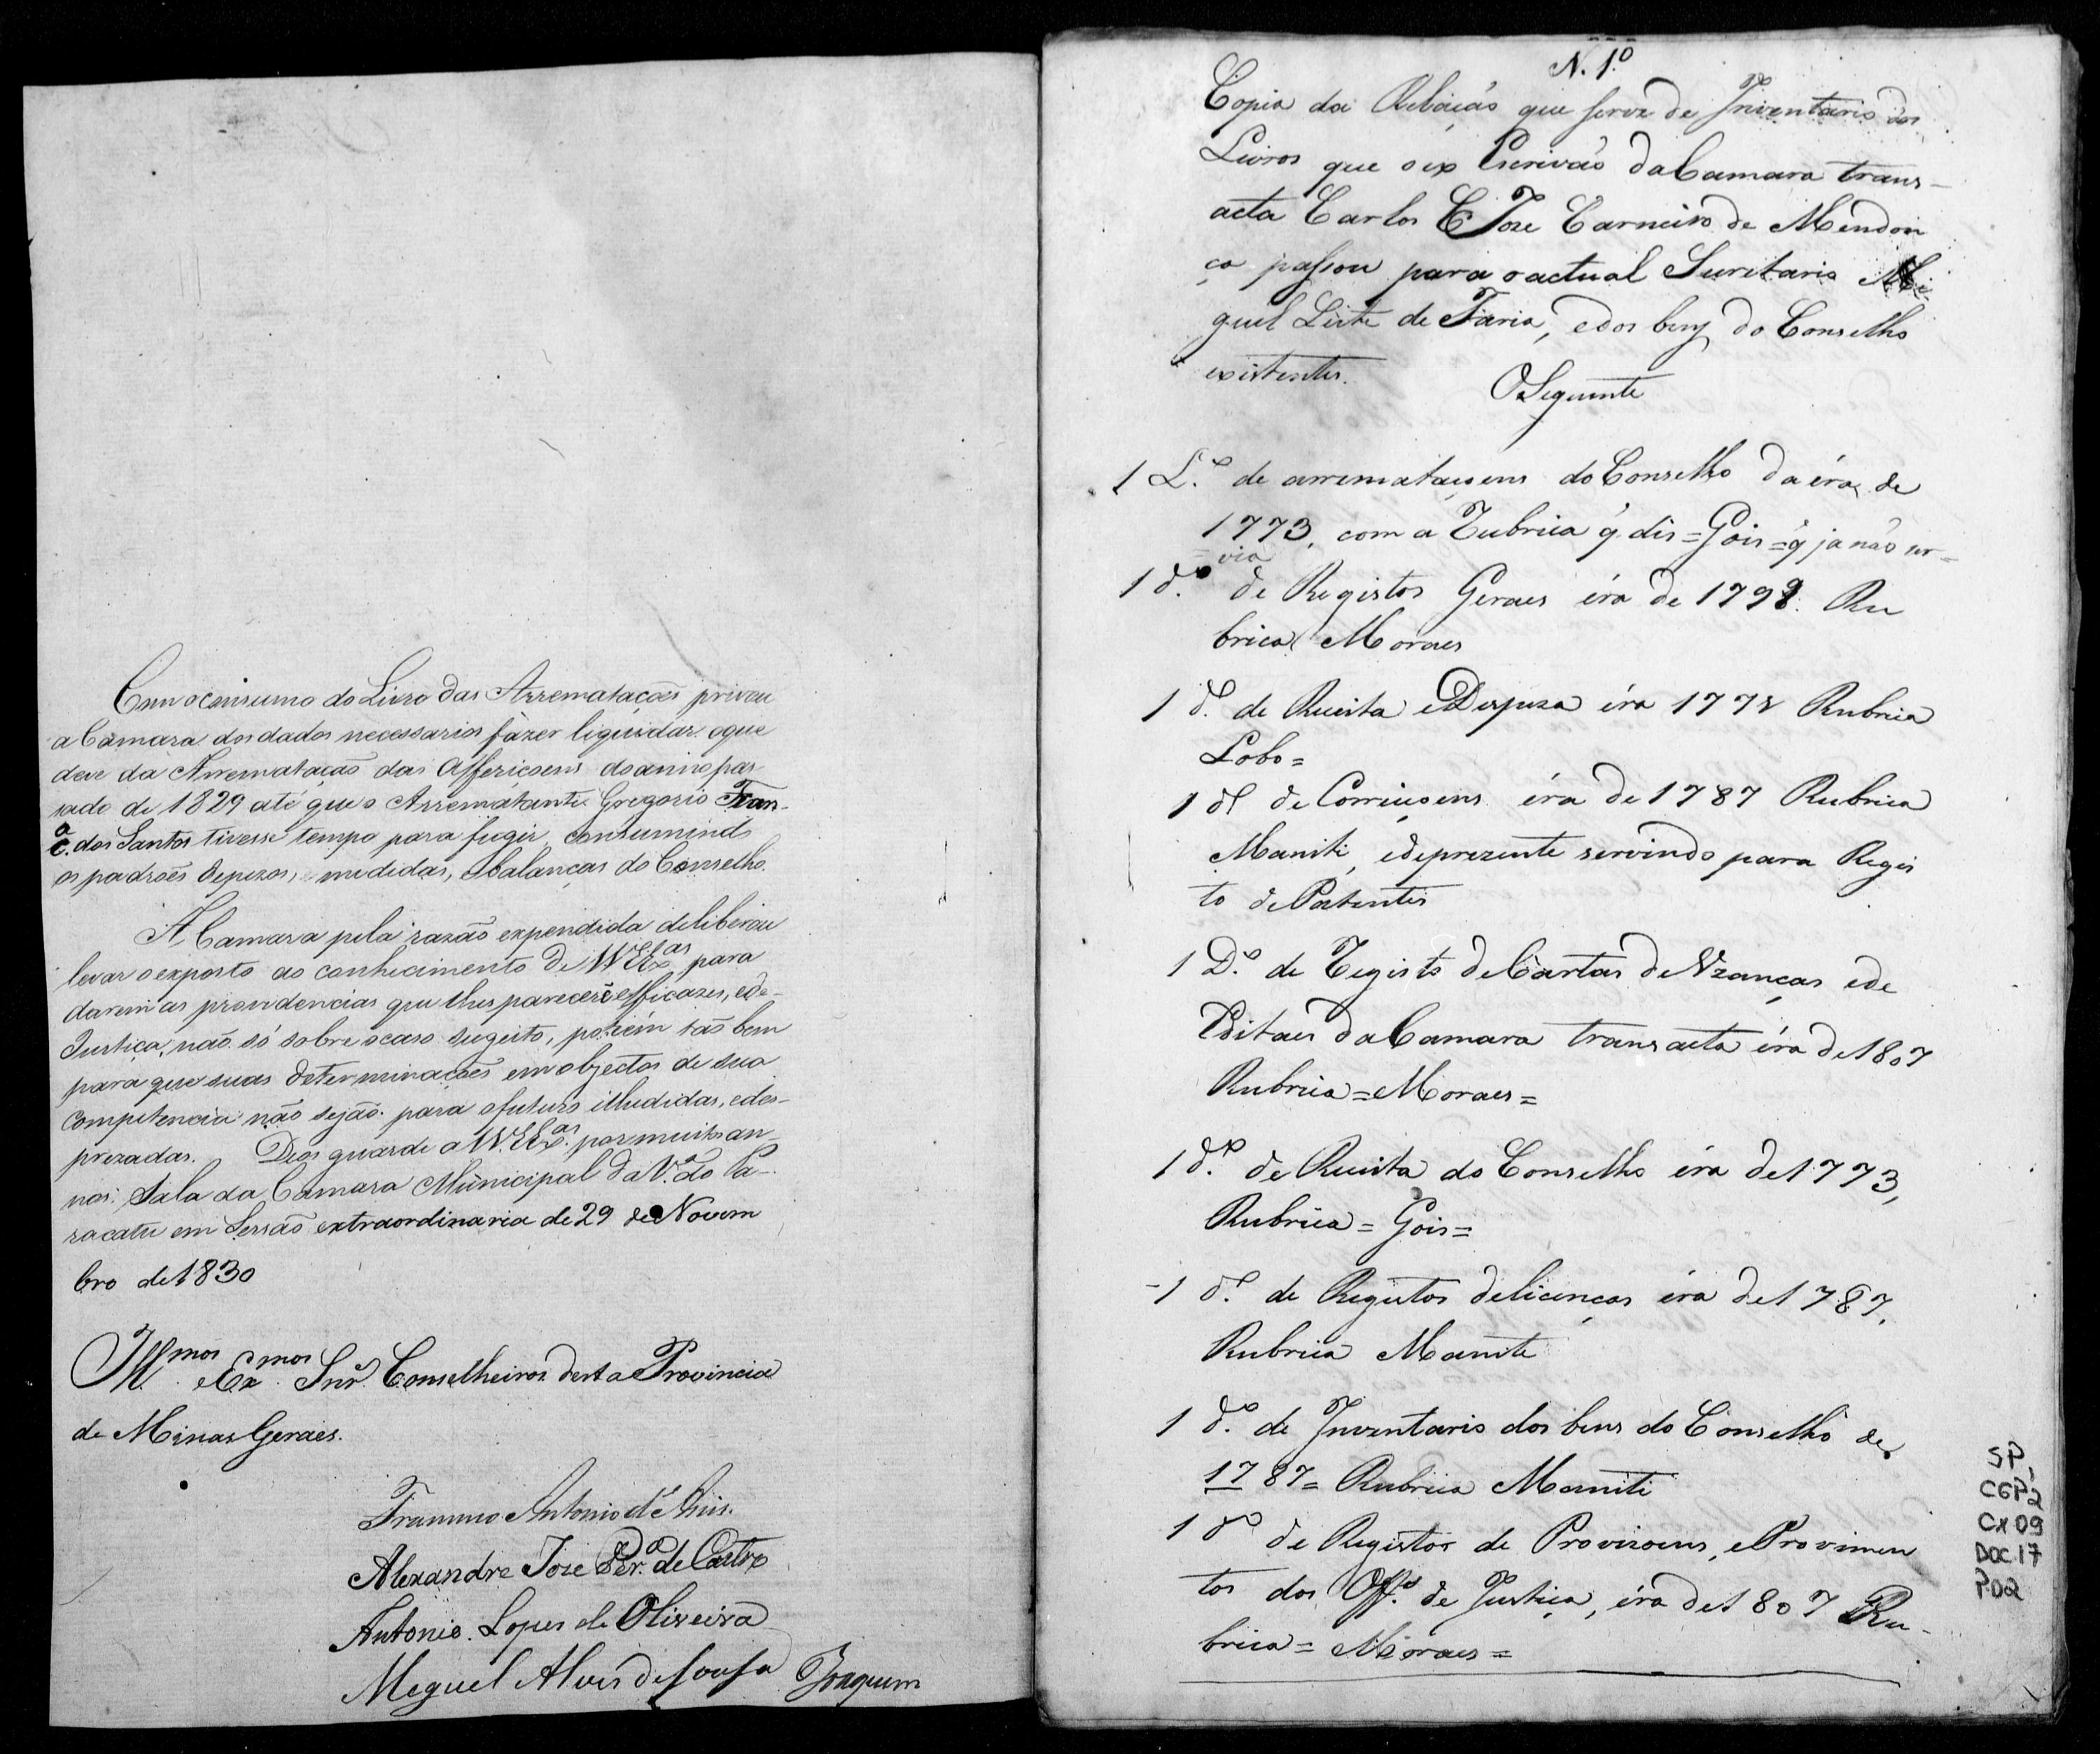 Com o consumo do Livro das Arremataçoẽs privou
a Camara dos dados necessarios fazer liquidar o que
deve da Arremataçaõ das Affericoens do anno pas
sado de 1829 até que o Arrematante Gregorio Fran-
c.ᵃ dos Santos tivesse tempo para fugir, consumindo
os padroẽs de pezos, medidas, e balanças do Conselho.
A Camara pela razaõ expendida deliberou
levar o exposto ao conhecimento de VV. Ex.ᵃˢ para
darem as providencias que lhes parecerẽ efficazes, e de
Justiça, naõ só sobre o caso sugeito, porém taõ bem
para que suas determinaçoẽs em objectos de sua
competencia naõ sejaõ para o futuro illudidas, e des-
prezadas. Deos guarde a VV. Ex.ᵃˢ por muitos an-
nos. Sala da Camara Municipal da V.ᵃ do Pa-
racatu em Sessaõ extraordinaria de 29 de Novem
bro de 1830
Ill.ᵐᵒˢ e Ex.ᵐᵒˢ Snr.ˢ Conselheiros desta Provincia
de Minas Geraes.
Antonio d'
Alexandre Joze Per.ᵃ de Castro
Antonio Lopes de Oliveira
Meguel Alves de Sousa Joaquim
N. 1.º
Copia da Relaçaõ que serve de Inventario dos
Livros que o ex Escrivaõ da Camara trans-
acta Carlos Joze Carneiro de Mendon
ça passou para o actual Secretario Mi
guel Leite de Faria, e dos bens do Conselho
existentes.
O Seguinte
1 L.º de arremataçoens do Conselho da éra de
1773, com a Rubrica q̃ dis = Gois = q̃ ja naõ ser-
via
1 d.º de Registos Geraes éra de 1798. Ru
brica Moraes
1 d.º de Receita e Despeza éra 1778 Rubrica
Lobo =
1 d.º de Correiçoens éra de 1787 Rubrica
Maniti, e de prezente servindo para Regis
to de Patentes
1 D.º de Registo de Cartas de Uzanças e de
Editaes da Camara transacta éra de 1807
Rubrica = Moraes =
1 d.º de Receita do Conselho éra de 1773,
Rubrica = Gois =
- 1 d.º de Registos de licenças éra de 1787,
Rubrica Maniti
1 d.º de Inventario dos bens do Conselho de
1787 = Rubrica Maniti
1 d.º de Registos de Provizoens, e Provimen
tos dos Off.ˢ de Justiça, éra de 1807 Ru-
brica = Moraes =
SP,
CGP2
CX 09
DOC.17
P.02